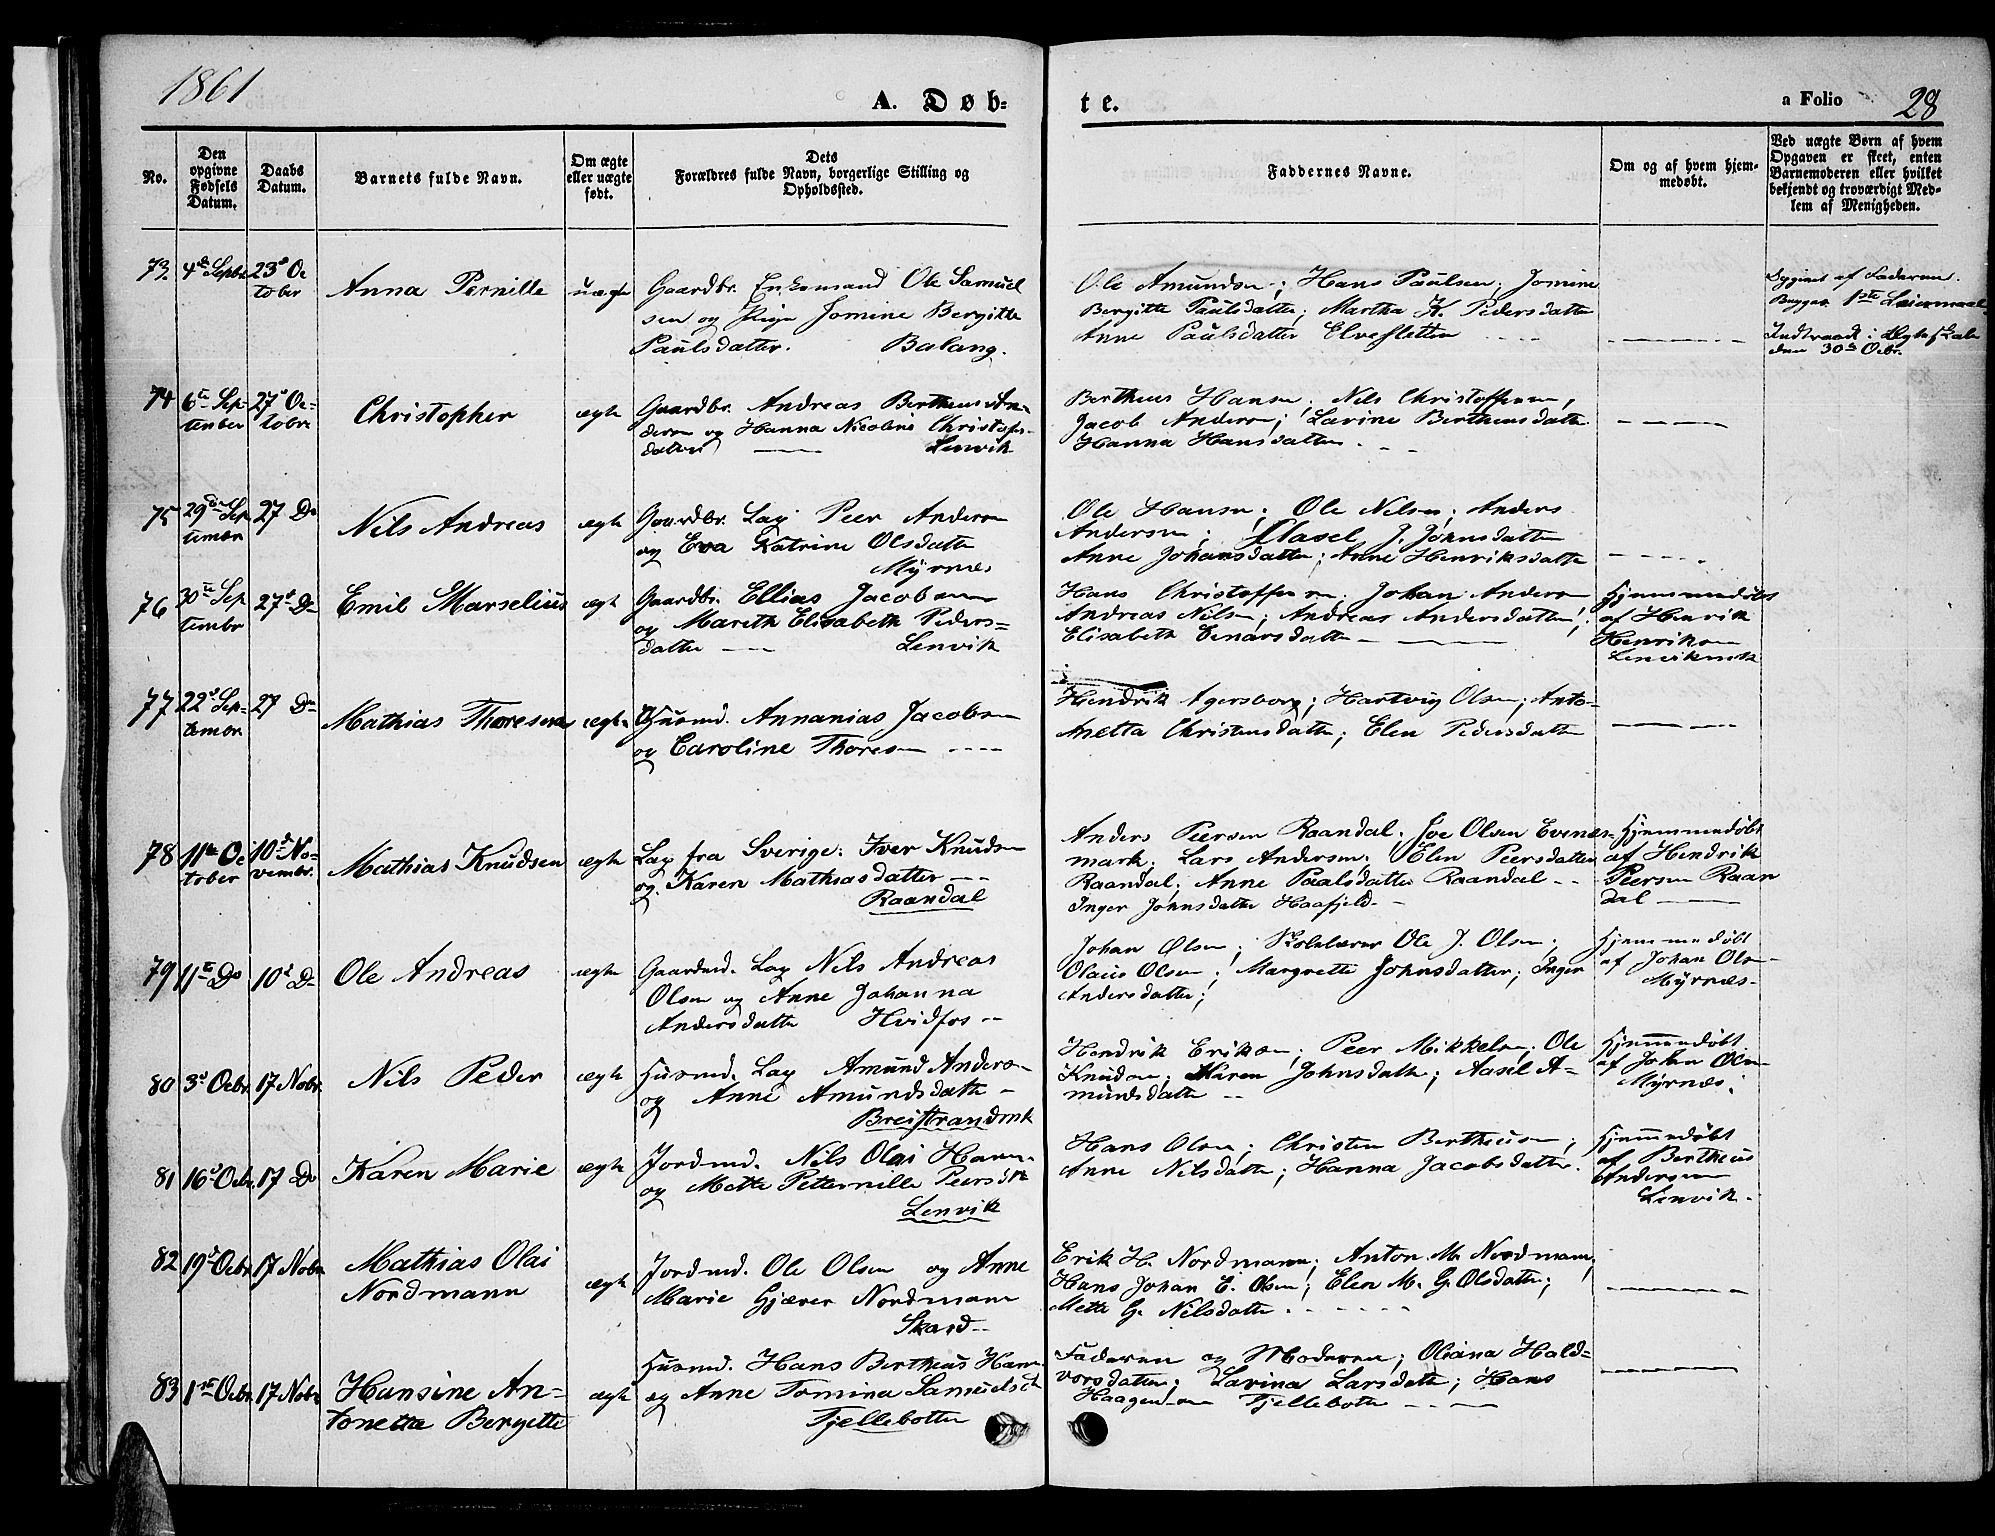 1861
A. Døb-
te.
a Folio 28
No.
Den opgivne Fødsels Datum.
Daabs Datum.
Barnets fulde Navn.
Om ægte eller uægte født.
Dets Forældres fulde Navn, borgerlige Stilling og Opholdssted.
Faddernes Navne.
Om og af hvem hjem-
medøbt.
Ved uægte Børn af hvem
Opgaven er skeet, enten
Barnemoderen eller hvilket
bekjendt og troværdigt Med-
lem af Menigheden.
73. 4de Septbr 23d Oc
tober
Anna Pernille
uægte
Gaardbr. Enkemand Ole Samuel
sen og Pige Jomine Bergitte
Paulsdatter. Balang.
Ole Amundsen; Hans Paulsen; Jomine
Bergitte Paulsdatter; Martha H. Pedersdatter
Anne Paulsdatter Elvesletten
af Faderen.
Begges 1ste Leiermaal
Indtraadt i Ægteskab
den 30te Octbr.
74 6te Sep-
tember
27d Oc-
tobr
Christopher
ægte
Gaardbr. Andreas Bertheus An-
dersen og Hanna Nicoline Christofers-
datter Lenvik
Bertheus Hansen; Nils Christoffersen,
Jacob Andersen; Lavine Bertheusdatter
Hanna Hansdatter
75 29de Sep
tember
27 Do
Nils Andreas
ægte
Gaardbr. Lap Peer Andersen
og Eva Katrine Olsdatter
Myrnæs
Ole Hansen; Ole Nilsen; Anders
Andersen; J. Johnsdatter
Anne Johansdatter; Anne Henriksdatter
76 30te Sep
tembr
27d Do
Emil Marselius
ægte
Gaardbr. Ellias Jacobsen
og Mareth Elisabeth Peders-
datter Lenvik
Hans Christoffersen Johan Andersen
Andreas Nilsen; Andreas Andersdatter;
Elisabeth Einarsdatter
Hjemmedøbt
af Henrik
Henriksen
Lenvikmrk
77 22d Sep-
tembr
27 Do
Mathias Thoresen
ægte
Husmd. Annanias Jacobsen
og Caroline Thoresen
Hendrik Agersborg; Hartvig Olsen; Anto-
netta Christensdatter; Elen Pedersdatter
78 11te Oc
tober
10d No-
vembr.
Mathias Knudsen
ægte
Lap fra Sverige: Iver Knudsen
og Karen Mathiasdatter
Raandal
Anders Peersen Raandal. Joe Olsen Evenes-
mark; Lars Andersen. Elen Peersdatter
Raandal; Anne Paalsdatter Raandal
Inger Johnsdatter Haafjeld
Hjemmedøbt
af Hendrik
Peersen Raan
dal
79 11te Do
10d Do
Ole Andreas
ægte
Gaardmd. Lap Nils Andreas
Olsen og Anne Johanna
Andersdatter Hvidfos
Johan Olsen; Skolelærer Ole J. Olsen;
Olaus Olsen; Margrette Johnsdatter; Inger
Andersdatter;
Hjemmedøbt
af Johan Olsen
Myrnæs
80 3d Octbr. 17 Nobr.
Nils Peder
ægte
Husmd. Lap Amund Andersen
og Anne Amundsdatter
Breistrandmk
Hendrik Eriksen; Peer Mikkelsen; Ole
Knudsen; Karen Johnsdatter; Aasel A-
mundsdatter
Hjemmedøbt
af Johan Olsen
Myrnæs
81 16d Octbr. 17 Do
Karen Marie
ægte
Jordmd. Nils Olai Hansen
og Mette Petternille Peersdtr
Lenvik
Hans Olsen; Christen Bertheusen;
Anne Nilsdatter; Hanna Jacobsdatter.
Hjemmedøbt
af Bertheus
Andersen
Lenvik
82 19d Octbr 17 Nobr
Mathias Olai
Nordmann
ægte
Jordmd. Ole Olsen og Anne
Marie Gjærer Nordmann
Skard
Erik H. Nordmann; Anton. M. Nordmann,
Hans Johan E. Olsen; Elen M. G. Olsdatter;
Mette G. Nilsdatter
83 1ste Octbr. 17 Nobr
Hansine An-
tonetta Bergette
ægte
Husmd. Hans Bertheus Hansen
og Anne Tomina Samuelsdt
Fjellebotten
Faderen og Moderen; Oliana Hald-
vorsdatter; Lavina Larsdatter; Hans
Haagensen Fjellebotten